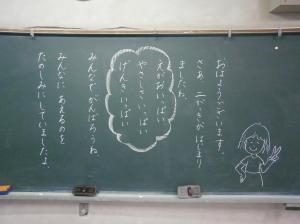 おはようございます。
さあ、二がっきがはじまり
ましたね。
えがおいっぱい
やさしさいっぱい
げんきいっぱい
みんなでがんばろうね
みんなに あえるのを
たのしみにしていましたよ。